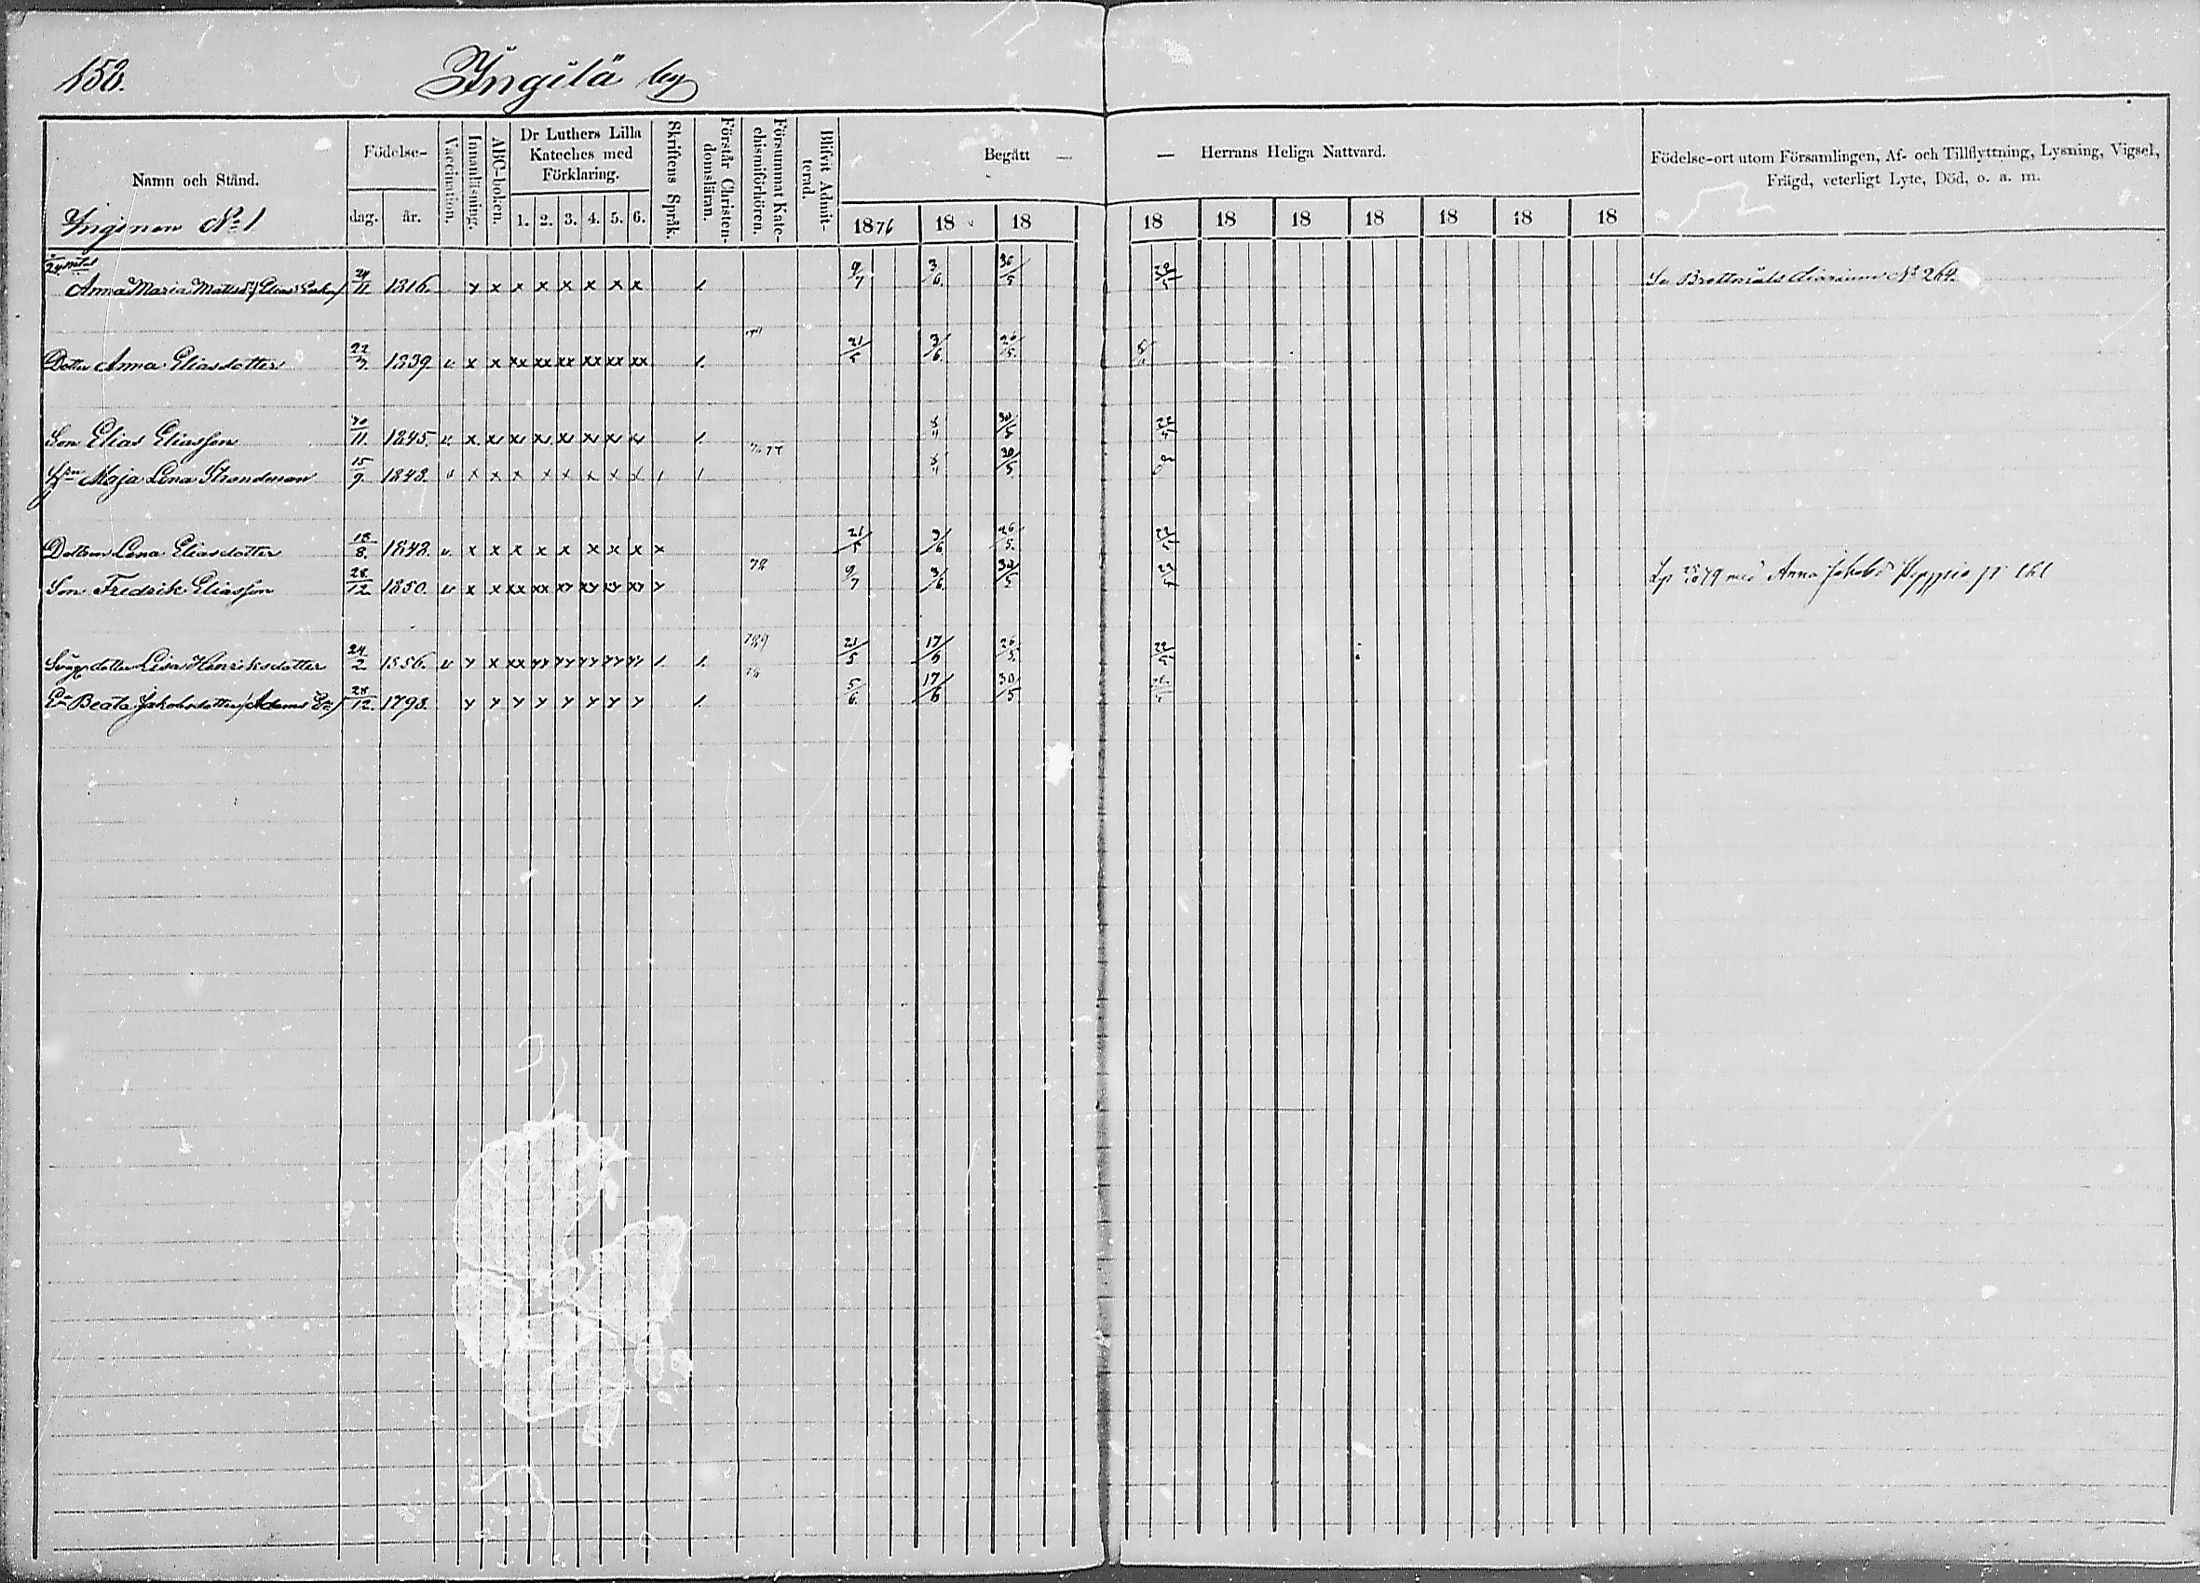 158.
Ingilä by
Namn och Stånd.
Födelse-
dag. år.
Vaccination.
Innanläsning.
ABC-boken.
Dr Luthers Lilla
Kateches med
Förklaring.
1. 2. 3. 4. 5. 6.
Skriftens Språk.
Förstår Christen-
domsläran.
Försummat Kate-
chismiförhören.
Blifvit Admit-
terad.
Begått —
— Herrans Heliga Nattvard.
1876 18 18 18 18 18 18 18 18 18
Födelse-ort utom Församlingen, Af- och Tillflyttning, Lysning, Vigsel,
Frägd, veterligt Lyte, Död, o. a. m.
Inginen No 1
Anna Maria Mattsd 24/11 1816. x x x x x x x x 1. 9/7 3/6. 30/5 Se Brottmåls diarium No 264.
Dotter Anna Eliasdotter 22/7. 1839. v. x x xx xx xx xx xx xx 1. 21/5 3/6. 26/5.
Son Elias Eliasson 30/11. 1845. v. x xx xx xx xx xx xx xx 1. 30/5
Maja Lena Strandman 15/9. 1848. v x x x x x x x x 1 1 30/5
Dottern Lena Eliasdotter 18/8. 1848. v. x x x x x x x x x 21/5 3/6 26/5.
Son Fredrik Eliasson 28/12 1850. v x x xx xx xx xx xx xx x 78 9/7 3/6. 30/5 79 med Anna Jakobsd
dotter Lisa Henriksdotter 24/2 1856. v x x xx xx xx xx xx xx 1. 1. 21/5 17/6 26/5.
Beata Jakobsdotter 28/12. 1793. x x x x x x x x 1. 5/6. 17/6 30/5